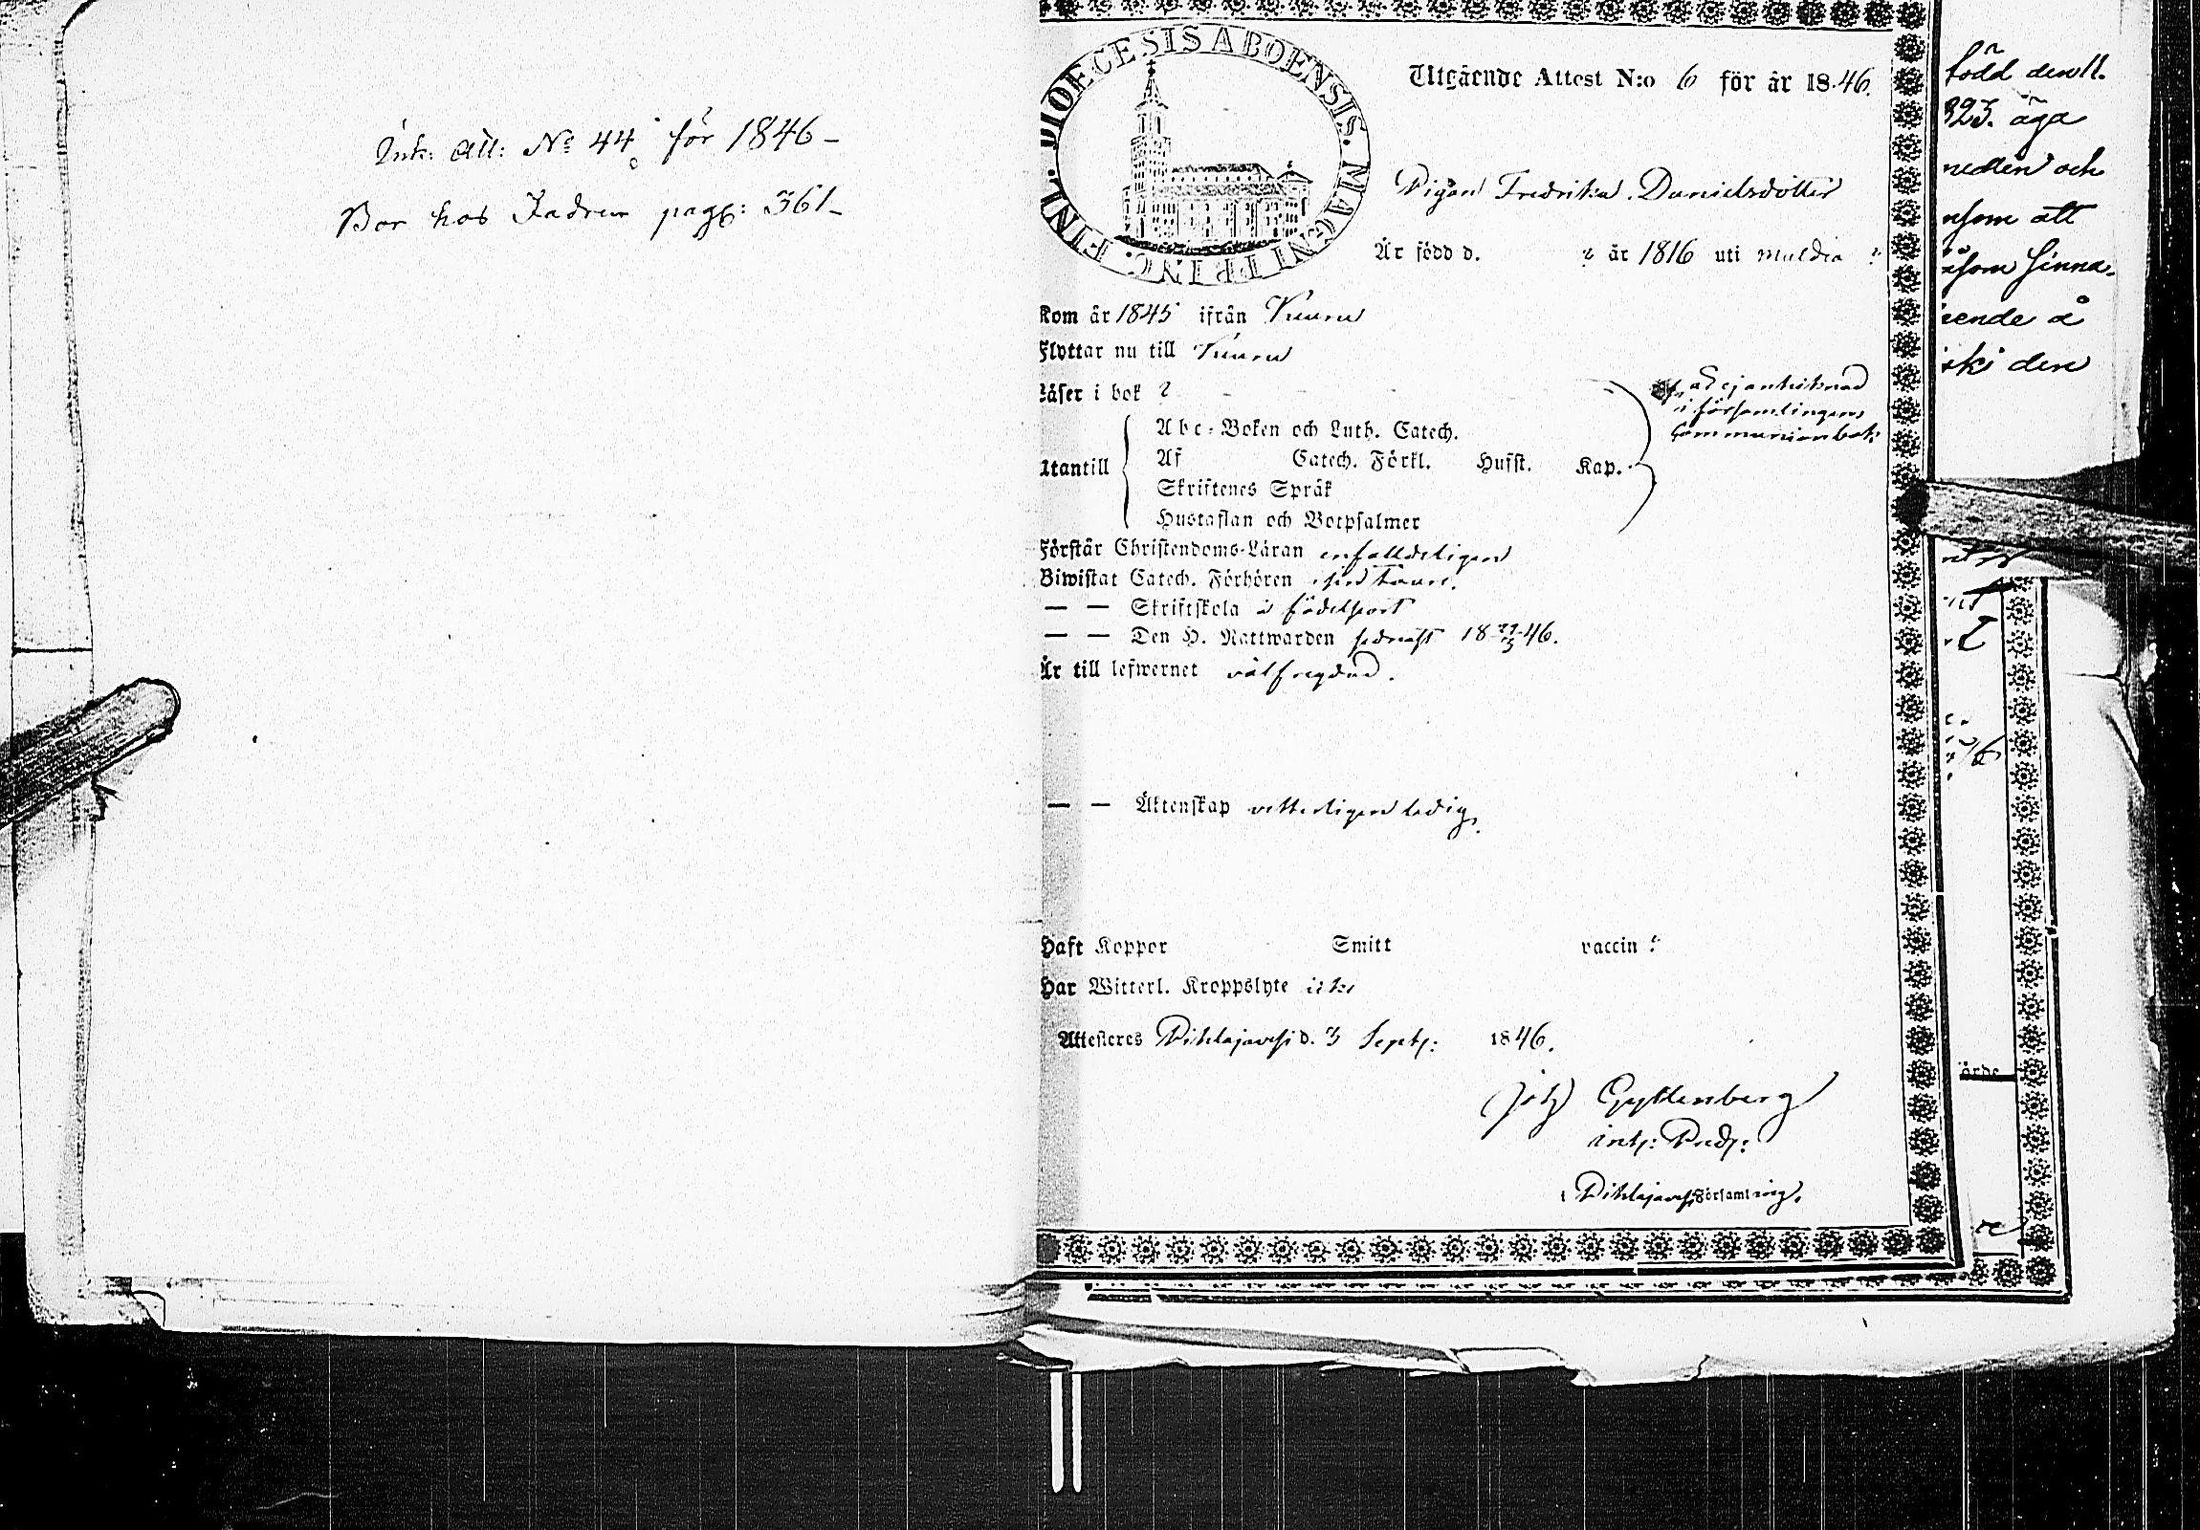 Ink: Att: No 44 för 1846 –
Bor hos Fadren pag: 361 –
DIOECESIS ABOENSIS. MAGNI PRINC. FINL.
Utgående Attest N:o 6 för år 1846.
Pigan Fredrika Danielsdotter
Är född d. ? år 1816 uti Muldia ?
Kom år 1845 ifrån Kuuru
Flyttar nu till Kuuru
Läser i bok ?
Abc-Boken och Luth. Catech.
Utantill Af Catech. Förkl. Husst. Kap.
Skriftenes Språk
Hustaflan och Botpsalmer
ej antecknad
i församlingens
Communionbok.
Förstår Christendoms-Läran enfalldeligen
Biwistat Catech. Förhören
— — Skriftskola å födelseort
— — Den H. Nattwarden sednast 18 46.
Är till lefwernet välfregdad.
— — Äktenskap vetterligen ledig.
Haft Koppor Smitt vaccin ?
Har Witterl. Kroppslyte icke
Attesteres Pihlajavesi d. 3 Sept: 1846.
Joh Gyllenberg
Pred:
Pihlajavesi Församling.
född den 11.
823. äga
och
som att
som finna.
ende å
den